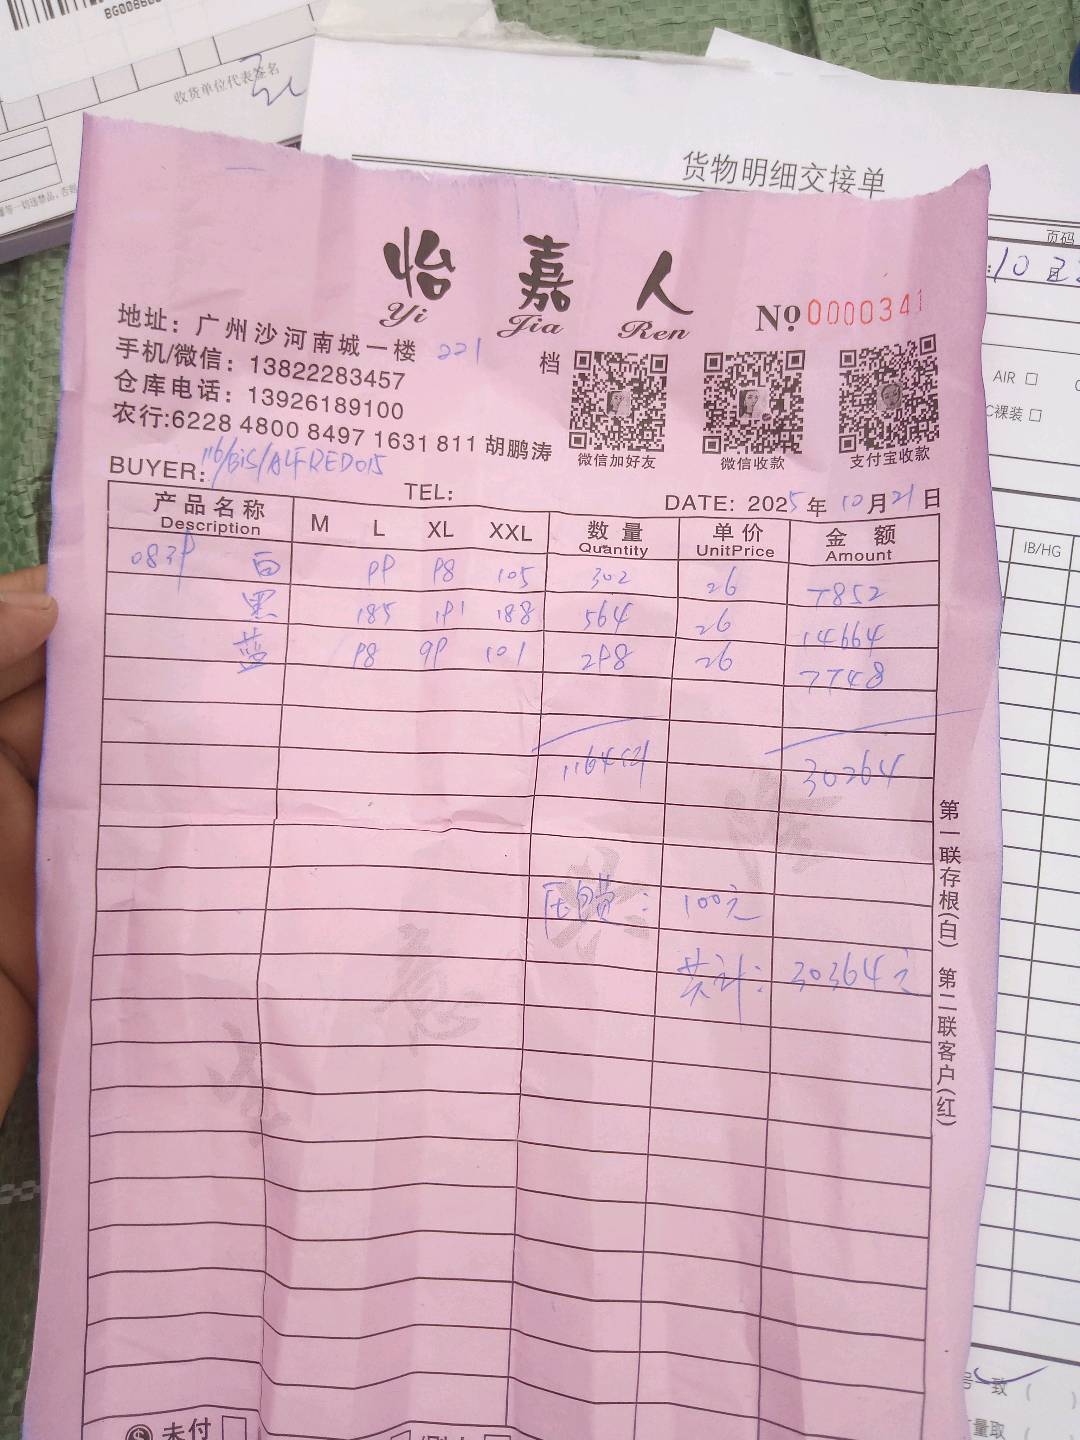 BG008
收货单位代表签名
货物明细交接单
页码
10 22
AIR □
裸装 □
IB/HG
怡嘉人
Yi Jia Ren
№ 0000341
地址：广州沙河南城一楼 221 档
手机/微信：13822283457
仓库电话：13926189100
农行:6228 4800 8497 1631 811 胡鹏涛
微信加好友 微信收款 支付宝收款
BUYER: 116/GiS/ALFRED015
TEL:
DATE: 2025年10月21日
产品名称 M L XL XXL 数量 单价 金额
Description Quantity UnitPrice Amount
0839 白 99 98 105 302 26 7852
黑 185 191 188 564 26 14664
蓝 98 99 101 298 26 7748
1164 30264
压包费：100元
共计：30364元
第一联存根(白) 第二联客户(红)
未付 □
一致 ( )
量取 (